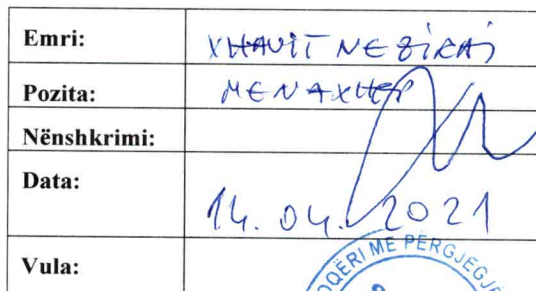 Emri: XHAVIT NEZIRAJ
Pozita: MENAXHER
Nënshkrimi:
Data: 14. 04. 2021
Vula:
OQËRI ME PËRGJEGJË